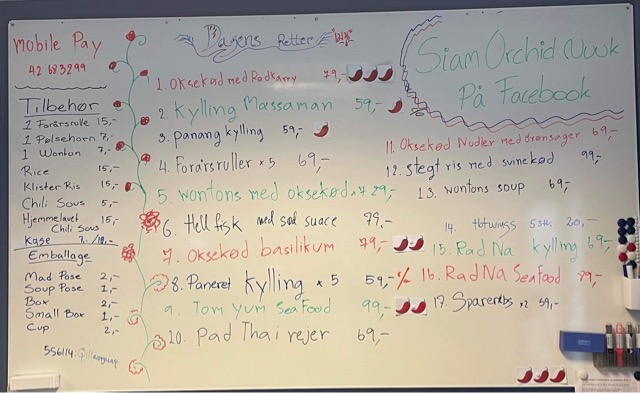 mobile Pay
42 683299
Tilbehør
1 Forårsrulle 15,-
1 Pølsehorn 7,-
1 Wonton 7,-
Rice 15,-
Klister Ris 15,-
Chili Sous 5,-
Hjemmelavet 15,-
Chili Sous
Emballage
Mad Pose 2,-
Soup Pose 1,-
Box 2,-
Small Box 1,-
Cup 2,-
Dagens Retter
1. Oksekød med Padkarry 79,-
2. Kylling Massaman 59,-
3. panang kylling 59,-
4. Forårsruller x 5 69,-
5. wontons med oksekød 29,-
6. Hell fisk med sød suace 79,-
7. Oksekød basilikum 79,-
8. Paneret kylling x 5 59,-
9. Tom yum Sea Food 99,-
10. Pad Thai rejer 69,-
Siam Orchid Nuuk
På Facebook
11. Oksekød Nudler med grønsager 69,-
12. stegt ris med svinekød 99,-
13. wontons soup 69,-
14. Hotwings 5 stk 20,-
15. Rad Na kylling 69,-
16. Rad Na Sea food 79,-
17. Spareribs x2 59,-